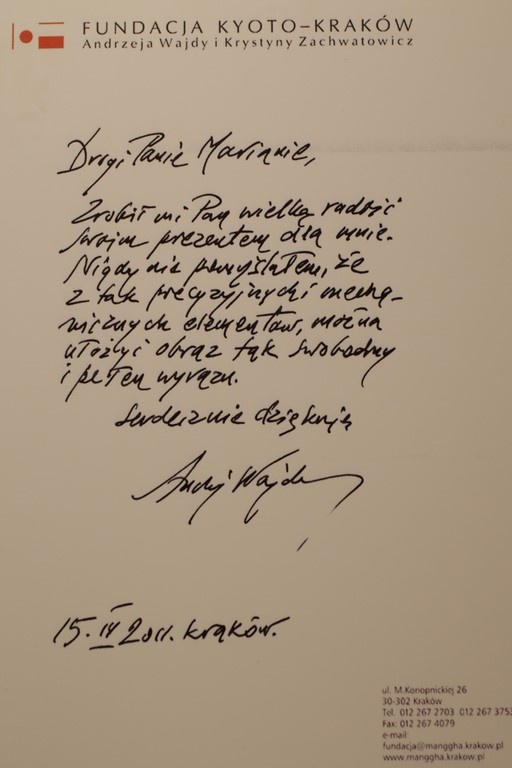 FUNDACJA KYOTO–KRAKÓW
Andrzeja Wajdy i Krystyny Zachwatowicz
Drogi Panie Marianie,
Zrobił mi Pan wielką radość
swoim prezentem dla mnie.
Nigdy nie pomyślałem, że
z tak precyzyjnych i mecha-
nicznych elementów, można
ułożyć obraz tak swobodny
i pełen wyrazu.
Serdecznie dziękuję
Andrzej Wajda
15. IV 2011. Kraków.
ul. M.Konopnickiej 26
30-302 Kraków
Tel. 012 267 2703 012 267 3753
Fax: 012 267 4079
e-mail:
fundacja@manggha.krakow.pl
www.manggha.krakow.pl